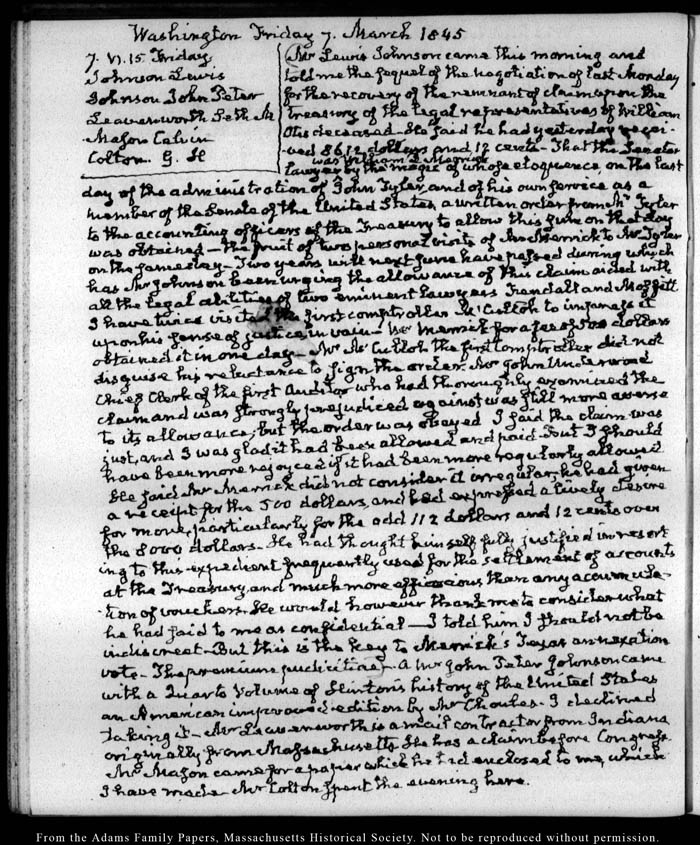 Washington Friday 7. March 1845
7. VI. 15. Friday
Johnson Lewis
Johnson John Peter
Leavenworth Seth M
Mason Calvin
Colton. G. H
Mr Lewis Johnson came this morning and
told me the sequel of the negotiation of last Monday
for the recovery of the remnant of claims upon the
Treasury of the legal representatives of William
Otis deceased. He said he had yesterday recei-
ved 8612 dollars and 12 cents. That the Senator
was William D. Merrick
lawyer by the magic of whose eloquence, on the last
day of the administration of John Tyler, and of his own service as a
member of the Senate of the United States a written order from Mr Tyler
to the accounting officers of the Treasury to allow this sum on that day
was obtained — the fruit of two personal visits of Mr Merrick to Mr Tyler
on the same day — Two years will next June have passed during which
has Mr Johnson been urging the allowance of this claim aided with
all the legal abilities of two eminent lawyers Fendall and Moffitt
I have twice visited the first comptroller McCulloh to impress it
upon his sense of justice, in vain — Mr Merrick for a fee of 500 dollars
obtained it in one day — Mr McCulloh the first Comptroller did not
disguise his reluctance to sign the order. Mr John Underwood
Chief Clerk of the first Auditor who had thoroughly examined the
claim and was strongly prejudiced against was still more averse
to its allowance; but the order was obeyed. I said the claim was
just, and I was glad it had been allowed and paid. But I should
have been more rejoyced if it had been more regularly allowed
He said Mr Merrick did not consider it irregular; he had given
a receipt for the 500 dollars, and had expressed a lively desire
for more, particularly for the odd 112 dollars and 12 cents over
the 8000 dollars — He had thought himself fully justified in resort
ing to this expedient frequently used for the settlement of accounts
at the Treasury, and much more efficacious than any accumula-
tion of vouchers. He would however thank me to consider what
he had said to me as confidential — I told him I should not be
indiscreet — But this is the key to Merrick's Texas annexation
vote — The premium pudicitiae — A Mr John Peter Johnson came
with a Quarto Volume of Hinton's history of the United States
an American improved edition by Mr Choules. I declined
taking it — Mr Leavenworth is a mail contractor from Indiana
originally from Massachusetts He has a claim before Congress
Mr Mason came for a paper which he had enclosed to me, which
I have made Mr Colton spent the evening here.
From the Adams Family Papers, Massachusetts Historical Society. Not to be reproduced without permission.